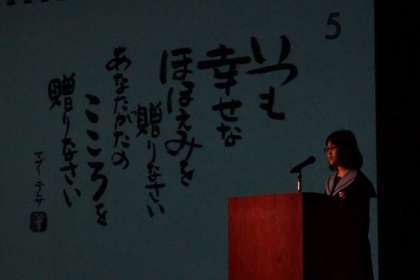 5
いつも
幸せな
ほほえみを
贈りなさい
あなたがたの
こころを
贈りなさい
マザーテレサ